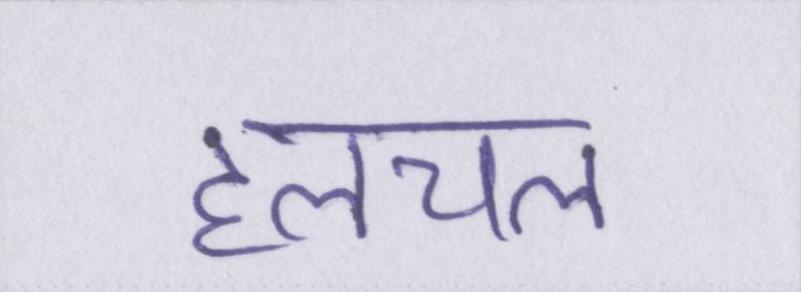 हलचल